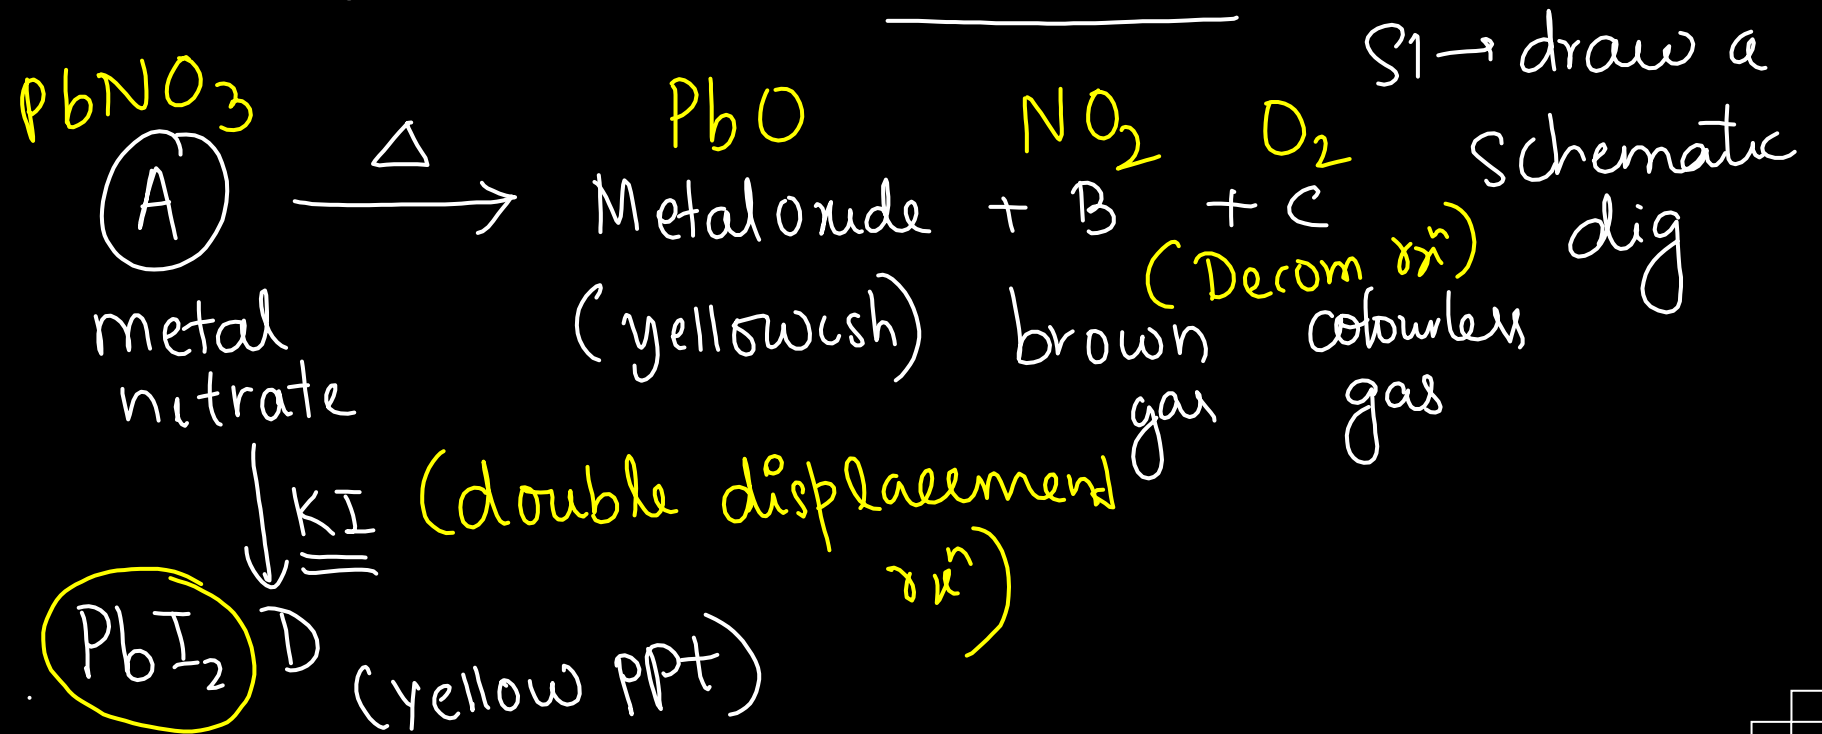 S1 → draw a
schematic
dig
PbNO3 PbO NO2 O2
A △ → Metal oxide + B + C
(Decom rxn)
metal (yellowish) brown colourless
nitrate gas gas
↓ KI (double displacement
rxn)
PbI2 D (yellow ppt)